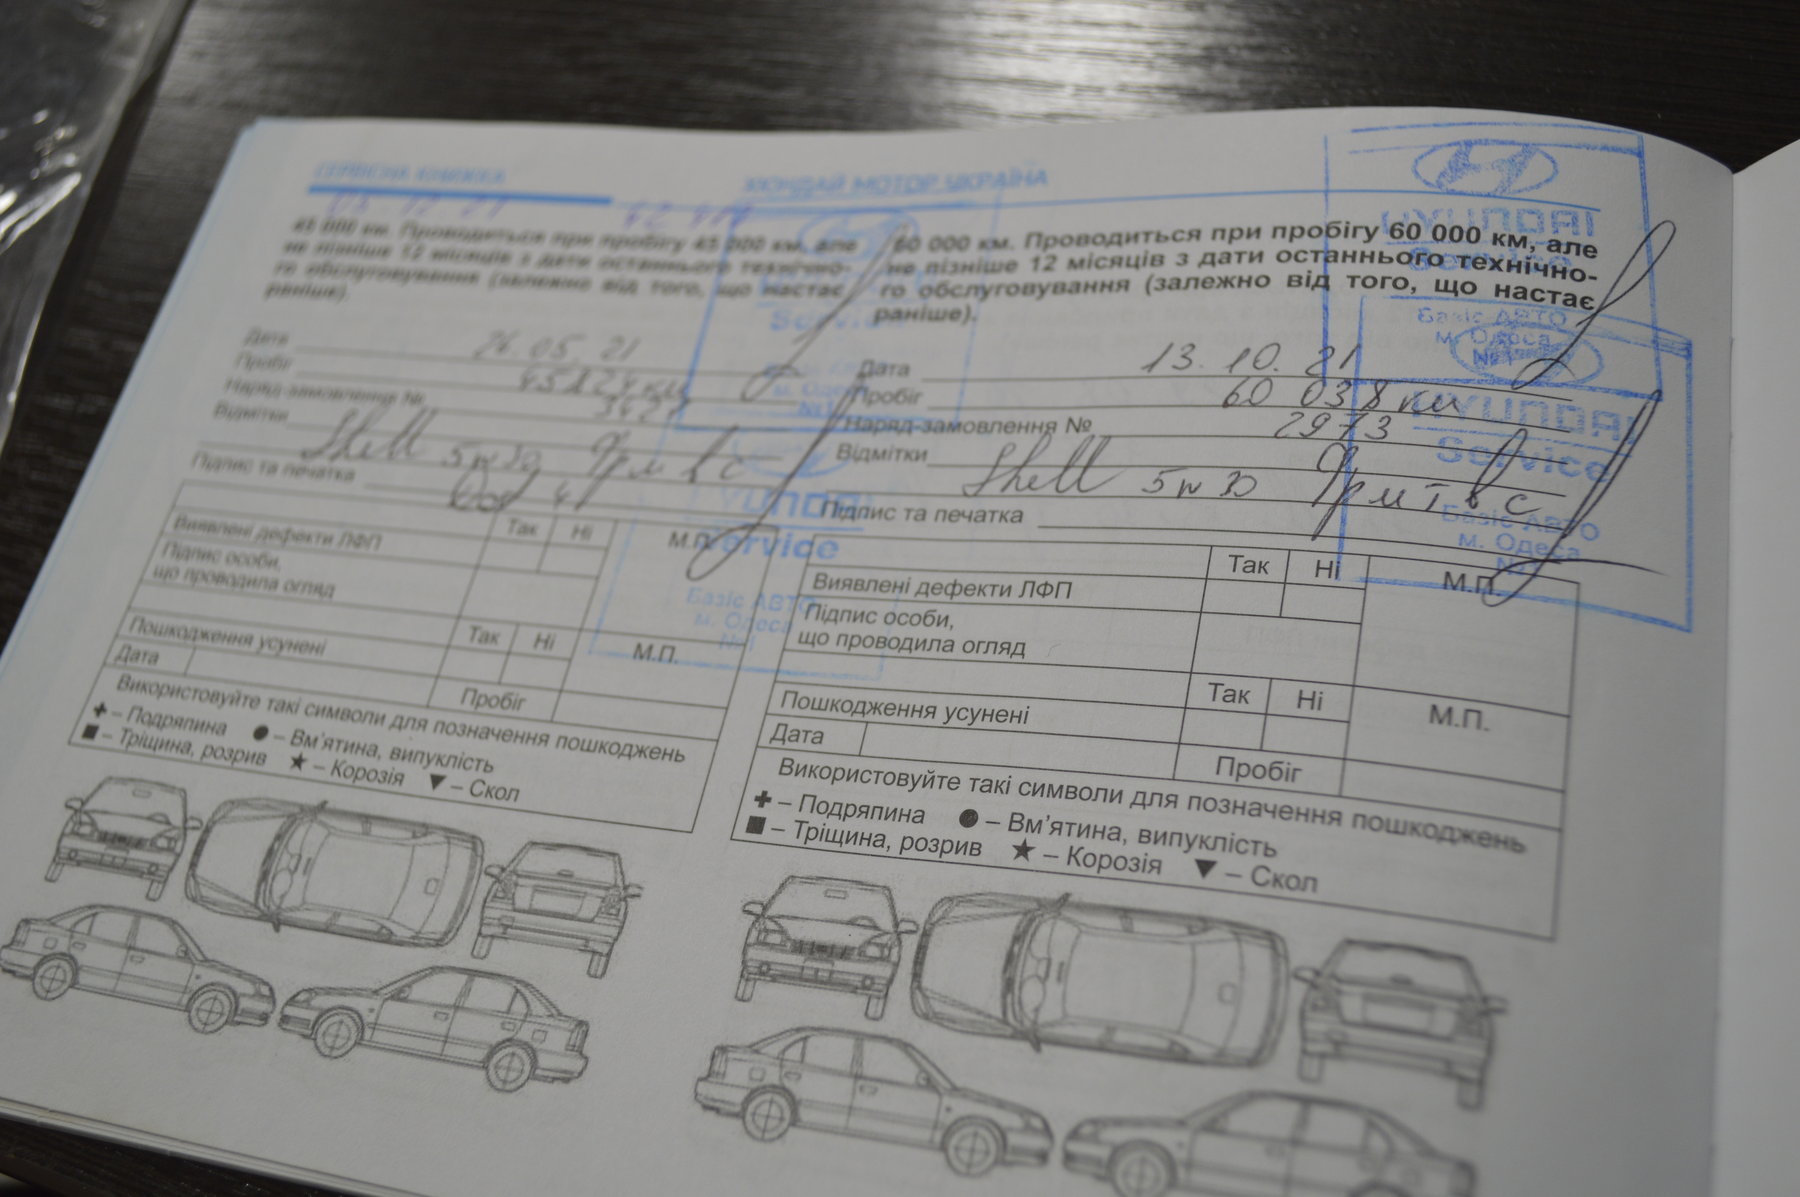 СЕРВІСНА КНИЖКА
ХЮНДАЙ МОТОР УКРАЇНА
45 000 км. Проводиться при пробігу 45 000 км, але
не пізніше 12 місяців з дати останнього технічно-
го обслуговування (залежно від того, що настає
раніше).
Дата 26.05.21
Пробіг
Наряд-замовлення №
Відмітки Shell 5w30
Підпис та печатка
Виявлені дефекти ЛФП
Так Ні М.П.
Підпис особи,
що проводила огляд
Пошкодження усунені
Так Ні М.П.
Дата
Пробіг
Використовуйте такі символи для позначення пошкоджень
✚ – Подряпина ● – Вм'ятина, випуклість
■ – Тріщина, розрив ★ – Корозія ▼ – Скол
HYUNDAI
Service
Базіс АВТО
м. Одеса
№1
60 000 км. Проводиться при пробігу 60 000 км, але
не пізніше 12 місяців з дати останнього технічно-
го обслуговування (залежно від того, що настає
раніше).
Дата 13.10.21
Пробіг 60 038 км
Наряд-замовлення № 2973
Відмітки Shell 5w30
Підпис та печатка
Виявлені дефекти ЛФП
Так Ні М.П.
Підпис особи,
що проводила огляд
Пошкодження усунені
Так Ні М.П.
Дата
Пробіг
Використовуйте такі символи для позначення пошкоджень
✚ – Подряпина ● – Вм'ятина, випуклість
■ – Тріщина, розрив ★ – Корозія ▼ – Скол
HYUNDAI
Service
Базіс АВТО
м. Одеса
№1
HYUNDAI
Service
Базіс АВТО
м. Одеса
№1